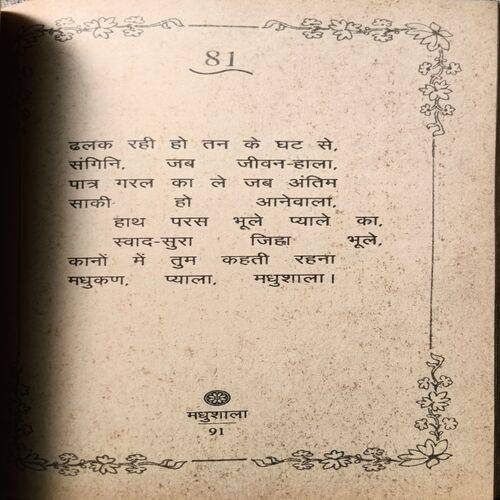 81
ढलक रही हो तन के घट से,
संगिनि, जब जीवन-हाला,
पात्र गरल का ले जब अंतिम
साकी हो आनेवाला,
हाथ परस भूले प्याले का,
स्वाद-सुरा जिह्वा भूले,
कानों में तुम कहती रहना
मधुकण, प्याला, मधुशाला।
मधुशाला
91